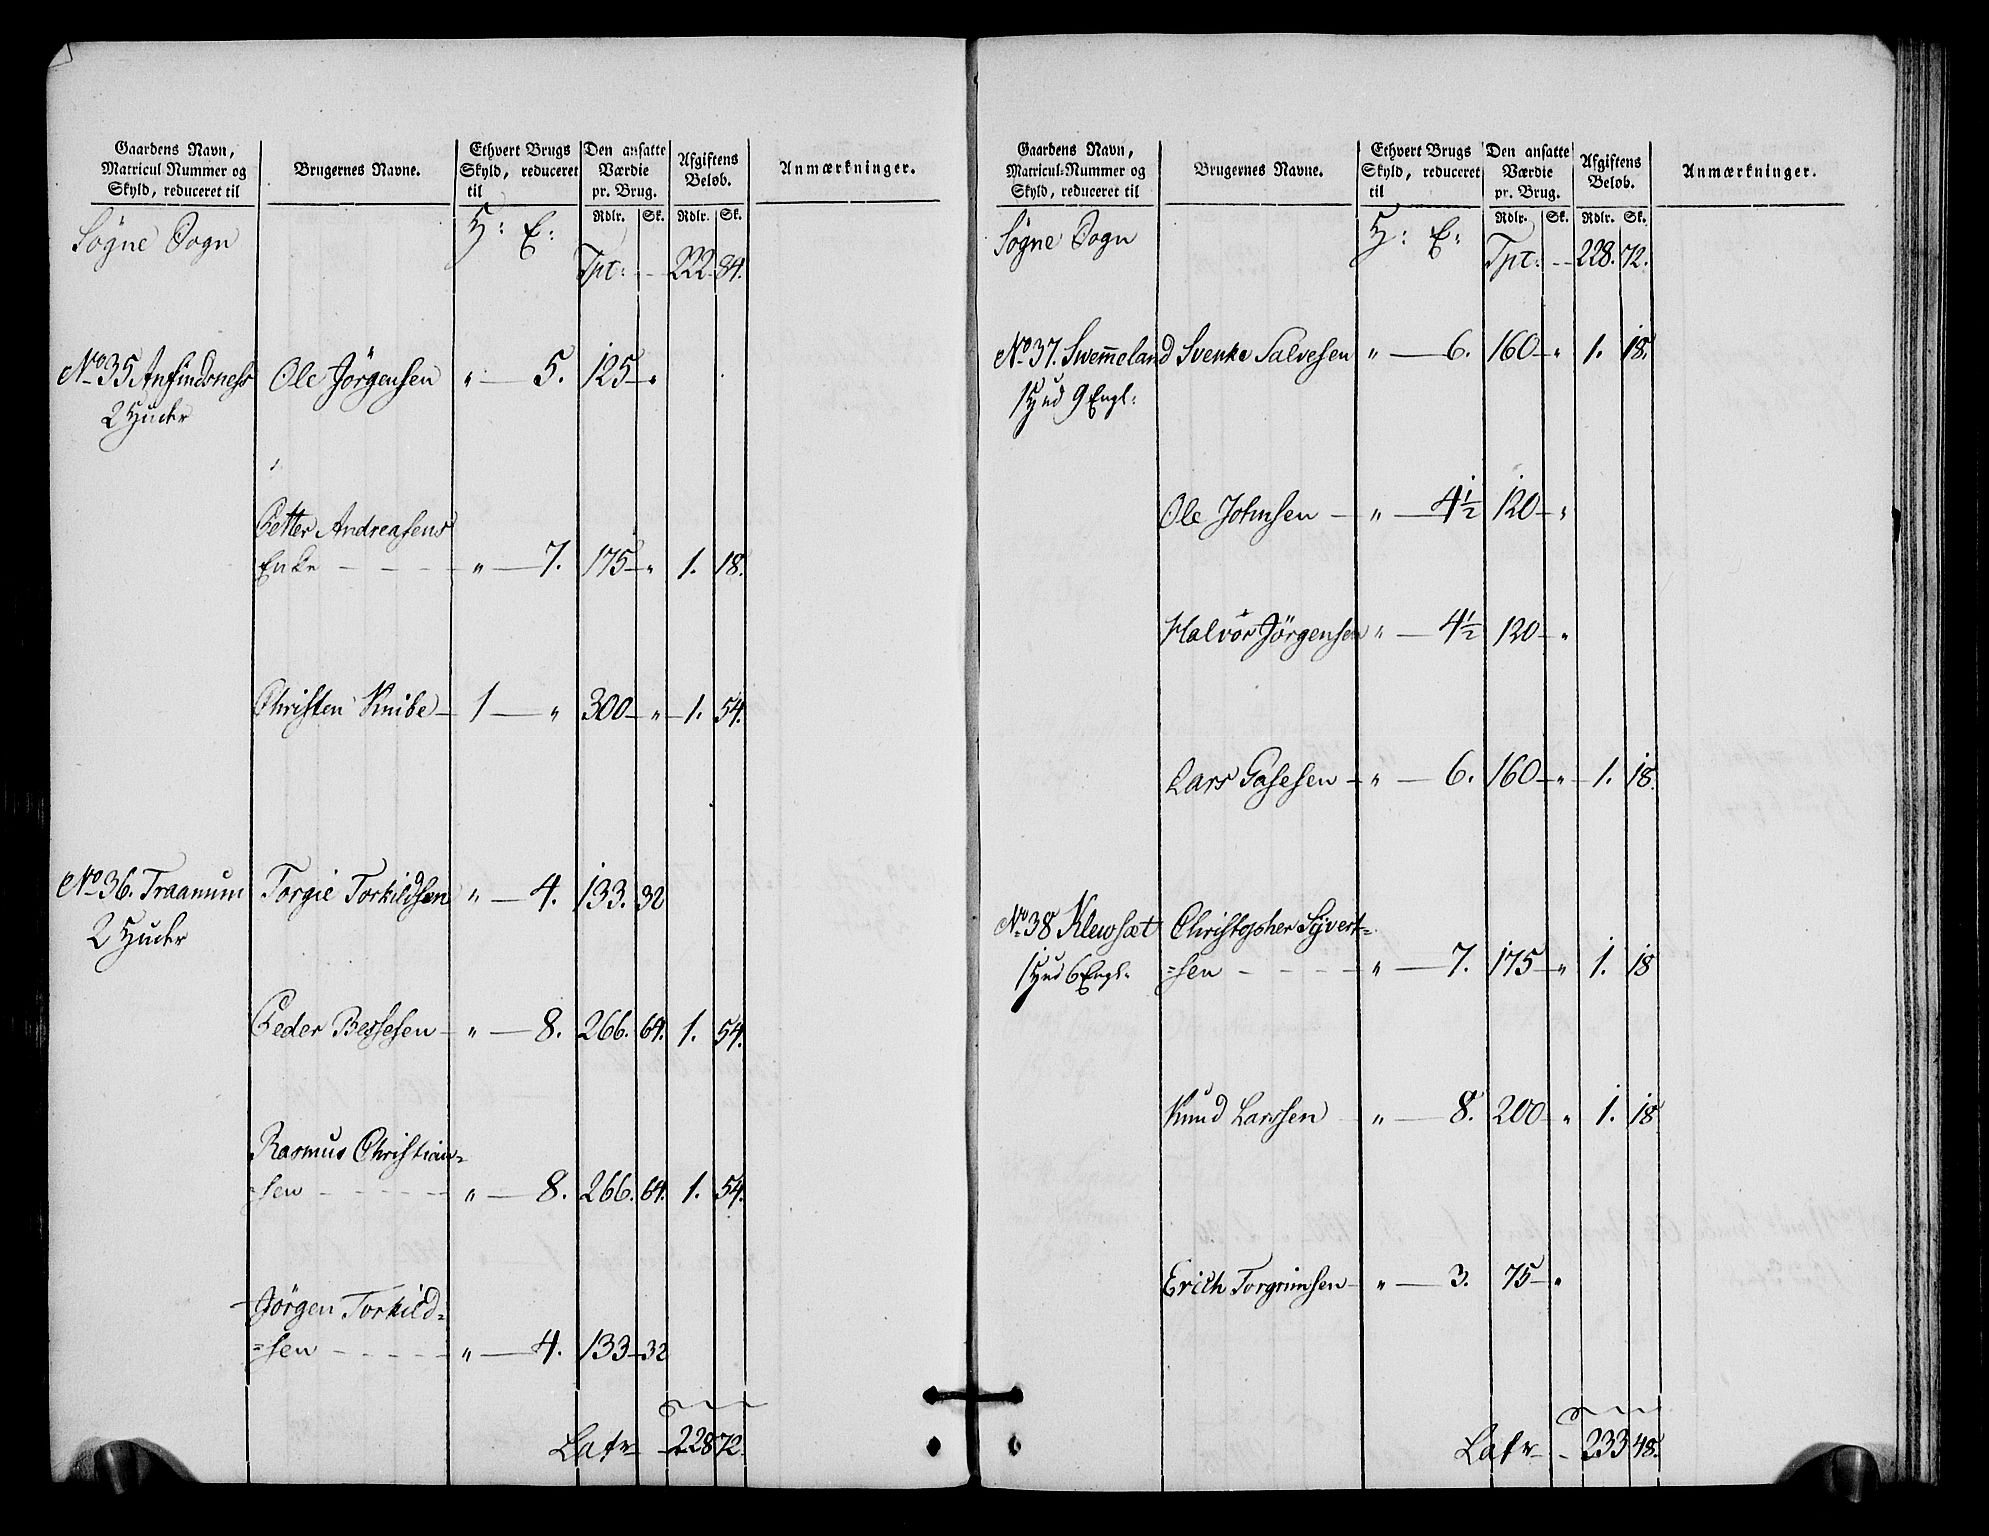 Gaardens Navn, Matricul-Nummer og Skyld, reduceret til
Brugernes Navne.
Ethvert Brugs Skyld, reduceret til
Den ansatte Værdie pr. Brug.
Afgiftens Beløb.
Anmærkninger.
Rdlr. Sk. Rdlr. Sk.
Søgne Sogn H: E:
Tpt: - - 222. 84.
No 35 Anfindsness Ole Jörgensen " — 5. 125 — "
2 Huder
Petter Andreasens
Enke - - - - " — 7. 175 — " 1. 18.
Christen Knibe — 1 — " 300 — " — 1. 54.
No 36. Traanum Torgie Torkildsen " — 4. 133. 32
2 Huder
Peder Berthesen — " — 8. 266. 64. 1. 54.
Rasmus Christian=
sen - - - - " — 8. 266. 64. 1. 54.
Jörgen Torkild=
=sen - - - - " — 4. 133 — 32
Latr — 228 72.
Gaardens Navn, Matricul-Nummer og Skyld, reduceret til
Brugernes Navne.
Ethvert Brugs Skyld, reduceret til
Den ansatte Værdie pr. Brug.
Afgiftens Beløb.
Anmærkninger.
Rdlr. Sk. Rdlr. Sk.
Søgne Sogn H: E:
Tpt: - - 228. 72.
No 37. Swem̄eland Svenke Salvesen " — 6. 160 — " 1. 18.
1 Hud 9 Engl:
Ole Johnsen — " — 4½ 120 — "
Halvor Jörgensen " — 4½ 120 — "
Lars Gasesen — " — 6. 160 — " — 1. 18.
No 38 Klewsæt Christopher Sÿvert=
1 Hud 6 Engl: =sen - - - - " — 7. 175 — " 1. 18
Knud Larssen " — 8. 200 — " 1. 18
Erich Torgrimsen — " — 3. 75 — "
Latr — - 233 48.